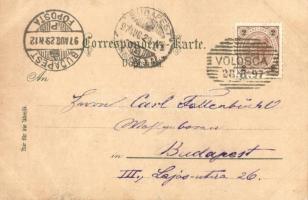 Correspondenz-Karte.
BUDAPEST
FŐPOSTA
97 AUG 29
VOLOSCA
28 8 97
An
Herrn Carl Fallenbüchl
in Budapest
III., Lajos-utcza 26.
Nur für die Adresse